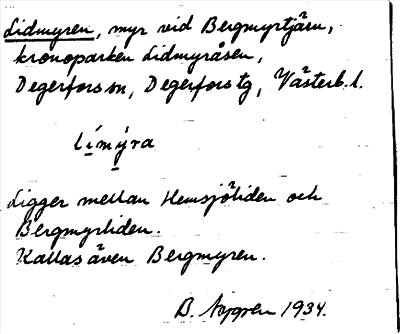 Lidmyren, myr vid Bergmyrtjärn,
kronoparken Lidmyråsen,
Degerfors sn, Degerfors tg, Västerb. l.
límýra
Ligger mellan Hemsjöliden och
Bergmyrliden.
Kallas även Bergmyren.
B. Nygren 1934.